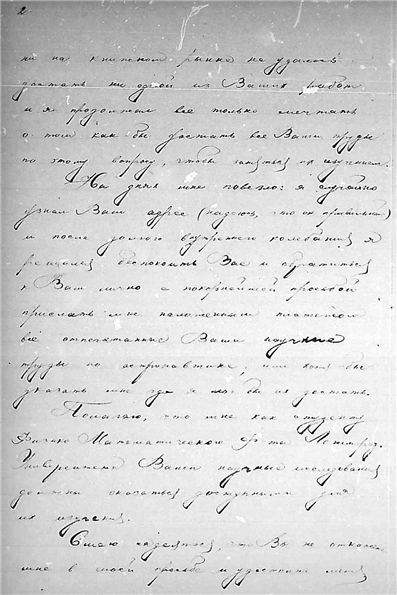 2
ни на книжном рынке не удалось
достать ни одной из Ваших работ
и я продолжал все только мечтать
о том как бы достать все Ваши труды
по этому вопросу, чтобы заняться их изучением.
На днях мне повезло: я случайно
узнал Ваш адрес (надеюсь, что он правильный)
и после долгого внутреннего колебания я
решился беспокоить Вас и обратиться
к Вам лично с покорнейшей просьбой
прислать мне наложенным платежом
все отпечатанные Ваши научные
труды по астронавтике, или хотя бы
указать мне где я мог бы их достать.
Полагаю, что мне как студенту
Физико Математического Ф-та Ленингр.
Университета Ваши научные исследования
должны оказаться доступными для
их изучения.
Смею надеяться, что Вы не откажете
мне в моей просьбе и удостоите меня